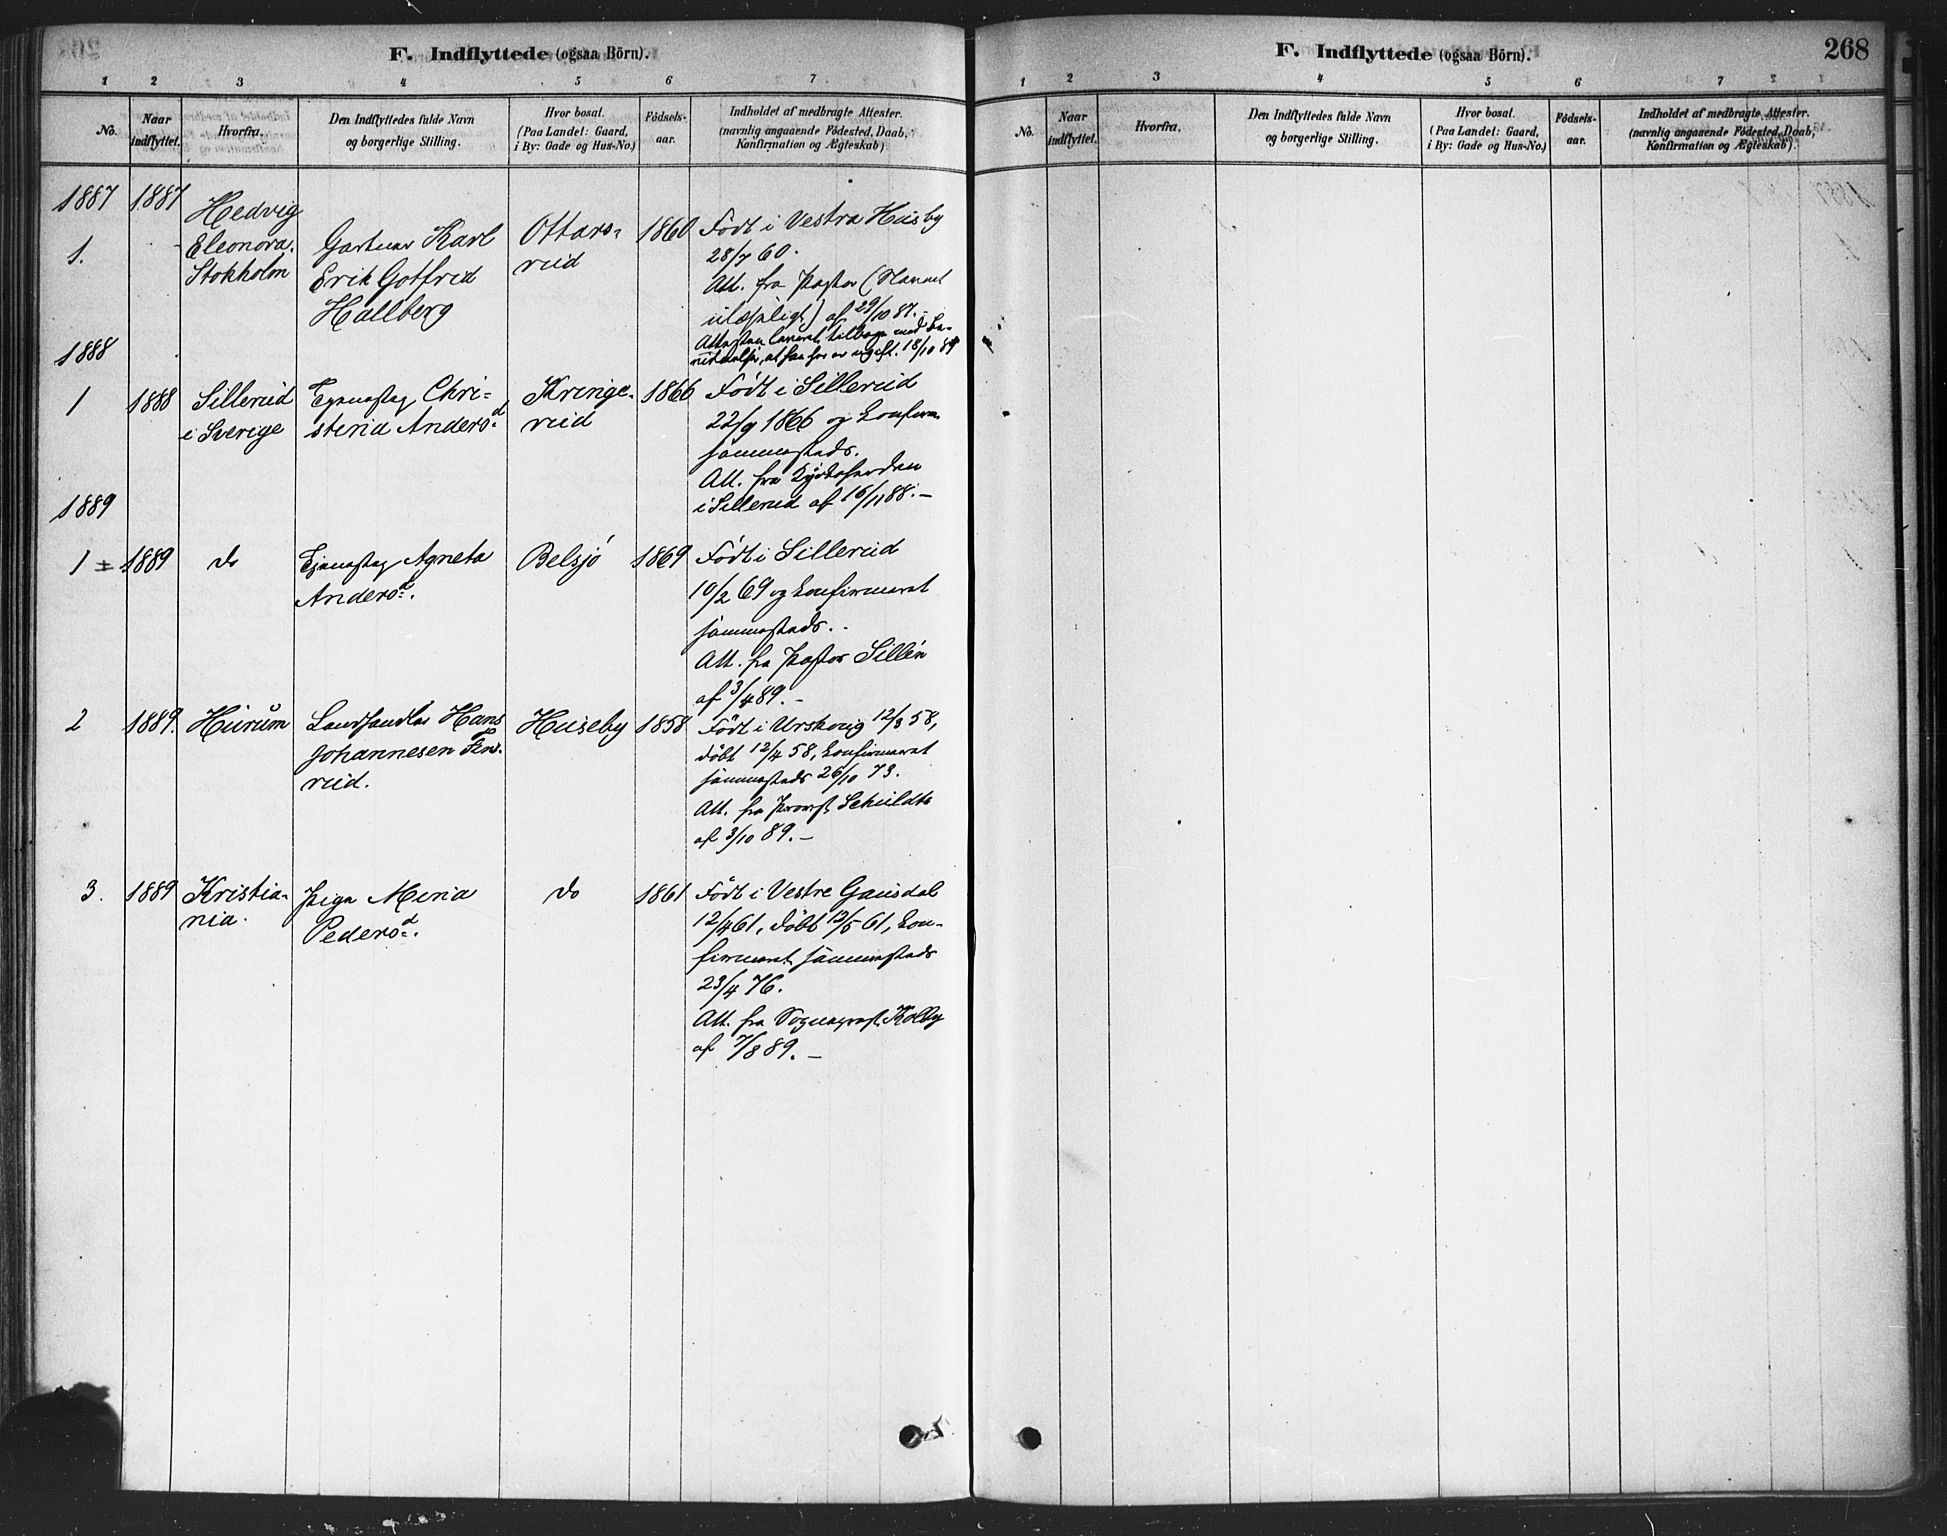 F. Indflyttede (ogsaa Börn).
1 2 3 4 5 6 7
No. Naar indflyttet. Hvorfra. Den Indflyttedes fulde Navn og borgerlige Stilling. Hvor bosat. (Paa Landet: Gaard, i By: Gade og Hus-No.) Födsels-aar. Indholdet af medbragte Attester. (navnlig angaaende Födested, Daab, Konfirmation og Ægteskab)
1887
1. 1887 Hedvig
Eleonora.
Stokholm
Gartner Karl
Erik Gotfrid
Hallberg
Ottars-
rud
1860
Födt i Vestra Husby
28/7 60.
Att. fra Pastor (Navnet
ulæseligt) af 29/10 87.-
Attesten leveret tilbage med
at han er ugift. 18/10 89
1888
1 1888 Sillerud
i Sverige
Tjenestep. Chri-
stina Andersd
Kringe-
rud
1866
Födt i Sillerud
22/9 1866 og konfirm.
sammesteds.
Att. fra Kyrkoherden
i Sillerud af 16/11 88.-
1889
1 1889 do
Tjenestep Agneta
Andersd.
Belsjö
1869
Födt i Sillerud
10/2 69 og konfirmeret
sammesteds.
Att. fra Pastor Sillén
af 3/4 89.-
2 1889. Hurum
Landhandler Hans
Johannesen
rud.
Huseby
1858
Födt i Urskoug 12/3 58,
döbt 12/4 58, konfirmeret
sammesteds 26/10 73.
Att. fra Provst Schuldts
af 3/10 89.-
3. 1889 Kristia-
nia.
Pige Maria
Pedersd.
do
1861
Födt i Vestre Gausdal
12/4 61, döbt 12/5 61, kon-
firmeret sammesteds
23/4 76.
Att. fra Sognepræst Kolby
af 7/8 89.-
F. Indflyttede (ogsaa Börn).
268
1 2 3 4 5 6 7
No. Naar indflyttet. Hvorfra. Den Indflyttedes fulde Navn og borgerlige Stilling. Hvor bosat. (Paa Landet: Gaard, i By: Gade og Hus-No.) Födsels-aar. Indholdet af medbragte Attester. (navnlig angaaende Födested, Daab, Konfirmation og Ægteskab).